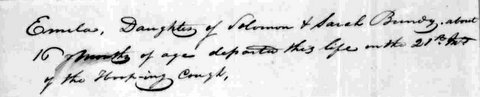 Emila, Daughter of Solomon & Sarah Bundy, about
16 Months of age departed this life on the 21st Inst
of the Hooping Cough,